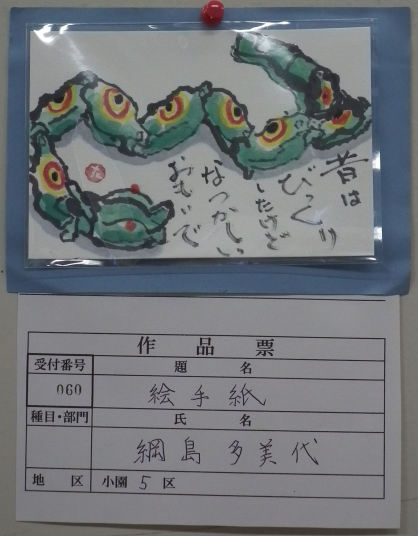 昔は
びっくり
したけど
なつかしい
おもいで
作品票
受付番号
題名
060
絵手紙
種目・部門
氏名
綱島多美代
地区
小園5区